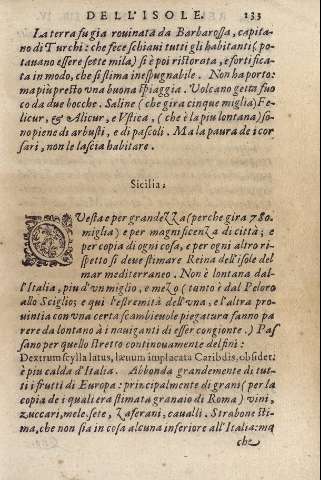 DELL'ISOLE. 133
La terra fu gia rouinata da Barbarossa, capita
no di Turchi: che fece schiaui tutti gli habitanti (po
teuano essere sette mila) si è poi ristorata, e fortifica
ta in modo, che si stima inespugnabile. Non ha porto:
ma piu presto vna buona spiaggia. Vulcano getta fuo
co da due bocche. Saline (che gira cinque miglia) Fe-
licur, & Alicur, e Vstica, (che è la piu lontana) so-
no piene di arbusti, e di pascoli. Ma la paura de i cor
sari, non le lascia habitare.
Sicilia:
QVesta e per grandezza (perche gira 780.
miglia) e per magnificenza di città; e
per copia di ogni cosa, e per ogni altro ri-
spetto si deue stimare Reina dell'isole del
mar mediterraneo. Non è lontana dal-
l'Italia, piu d'un miglio, e mezo (tanto è dal Peloro
allo Sciglio; e qui l'estremità dell'vna, e l'altra pro-
uintia con vna certa scambieuole piegatura fanno pa
rere da lontano à i nauiganti di esser congionte.) Pas
sano per quello stretto continouamente delfini:
Dextrum scylla latus, læuum implacata Caribdis, obsidet:
è piu calda d'Italia. Abbonda grandemente di tut-
ti i frutti di Europa: principalmente di grani (per la
copia de i quali era stimata granaio di Roma) vini,
zuccari, mele, sete, zaferani, caualli. Strabone sti-
ma, che non sia in cosa alcuna inferiore all'Italia: ma
che